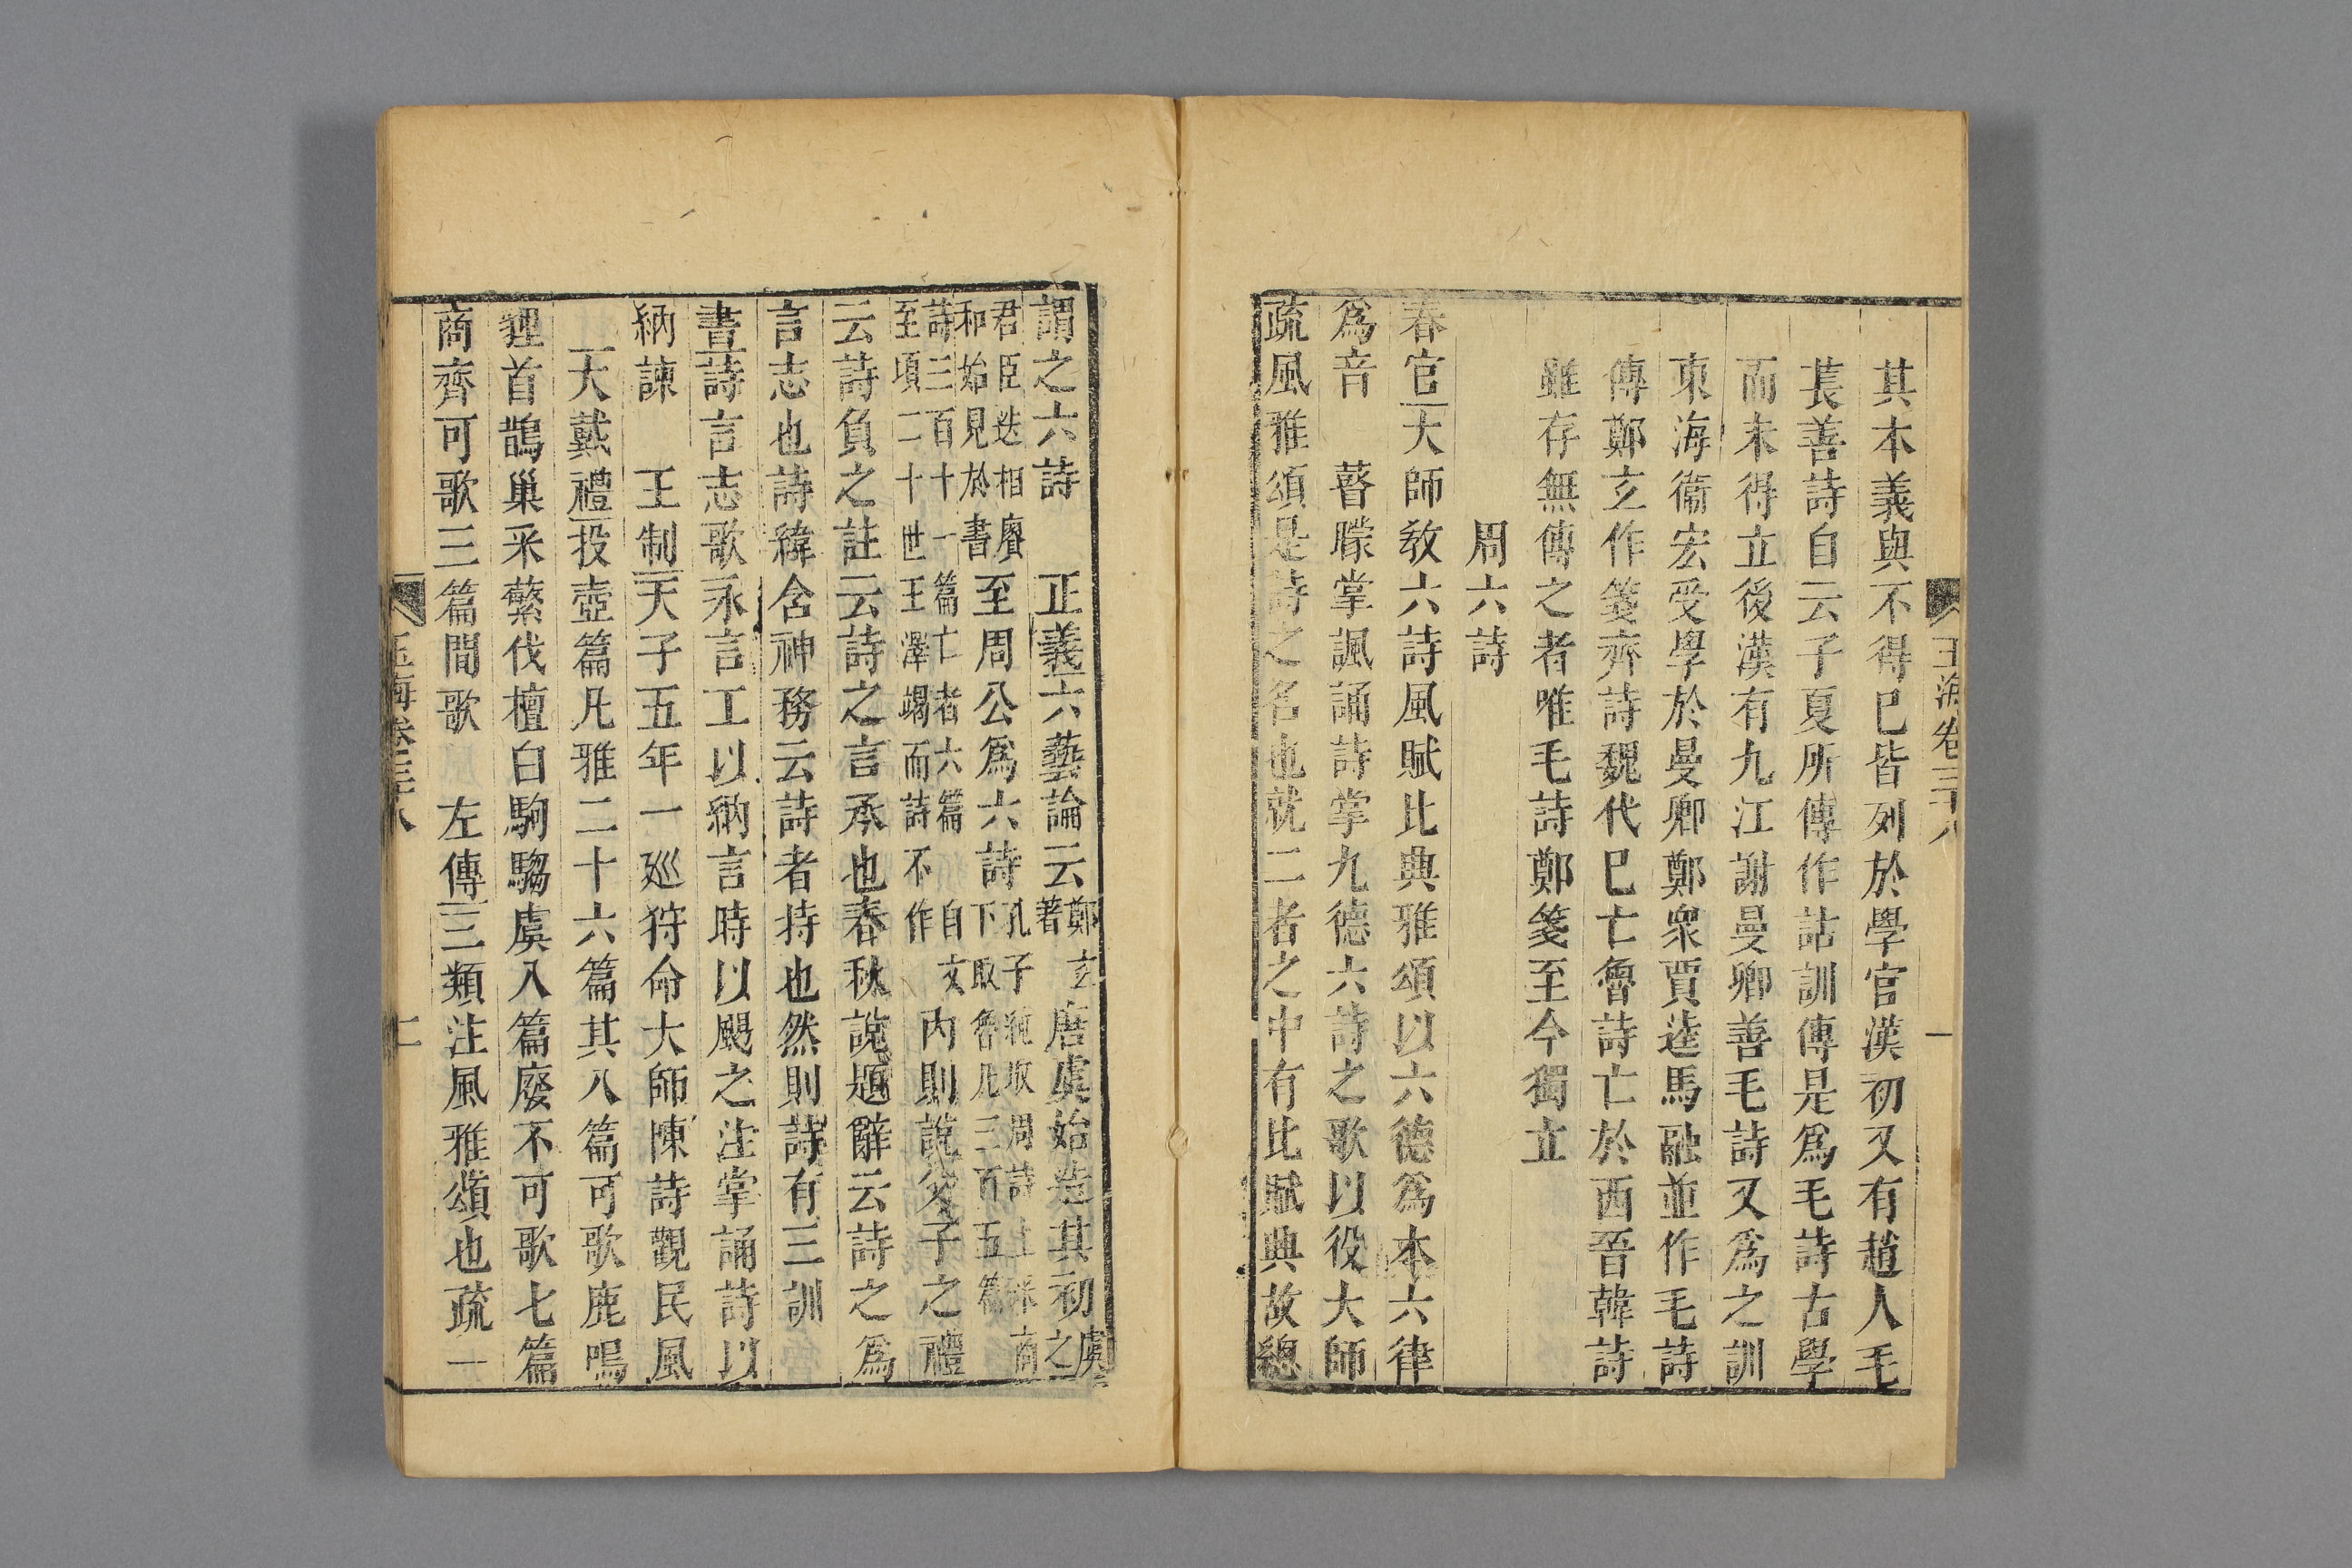 玉海卷三十八
一
其本義與不得巳皆列於學官漢初又有趙人毛
萇善詩自云子夏所傳作詁訓傳是爲毛詩古學
而未得立後漢有九江謝曼卿善毛詩又爲之訓
東海衞宏受學於曼卿鄭衆賈逵馬融並作毛詩
傳鄭玄作箋齊詩魏代巳亡魯詩亡於西晉韓詩
雖存無傳之者唯毛詩鄭箋至今獨立
周六詩
春官大師敎六詩風賦比興雅頌以六德爲本六律
爲音 瞽矇掌諷誦詩掌九德六詩之歌以役大師
疏風雅頌是詩之名也就二者之中有比賦興故總
謂之六詩 正義六藝論云鄭玄著唐虞始造其初虞之
君臣迭相賡和始見於書至周公爲六詩孔子純取周詩上采商下取魯凡三百五篇
詩三百十一篇亡者六篇自文至頃二十世王澤竭而詩不作內則說父子之禮
云詩負之註云詩之言承也春秋說題辭云詩之爲
言志也詩緯含神務云詩者持也然則詩有三訓
書詩言志歌永言工以納言時以颺之注掌誦詩以
納諫 王制天子五年一廵狩命大師陳詩觀民風
大戴禮投壺篇凡雅二十六篇其八篇可歌鹿鳴
狸首鵲巢采蘩伐檀白駒騶虞八篇廢不可歌七篇
商齊可歌三篇間歌 左傳三類注風雅頌也疏一
玉海卷三十八
二